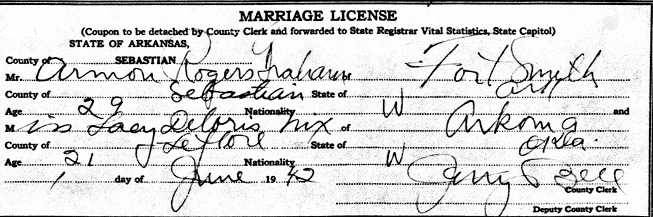 MARRIAGE LICENSE
(Coupon to be detached by County Clerk and forwarded to State Registrar Vital Statistics, State Capitol)
STATE OF ARKANSAS,
County of SEBASTIAN
Mr. Armon Rogers Graham of Fort Smith
County of Sebastian State of Ark
Age 29 Nationality W and
Miss Lacy Deloris Nix of Arkoma
County of Leflore State of Okla.
Age 21 Nationality W
1 day of June 1942 Jerry Bell
County Clerk
Deputy County Clerk